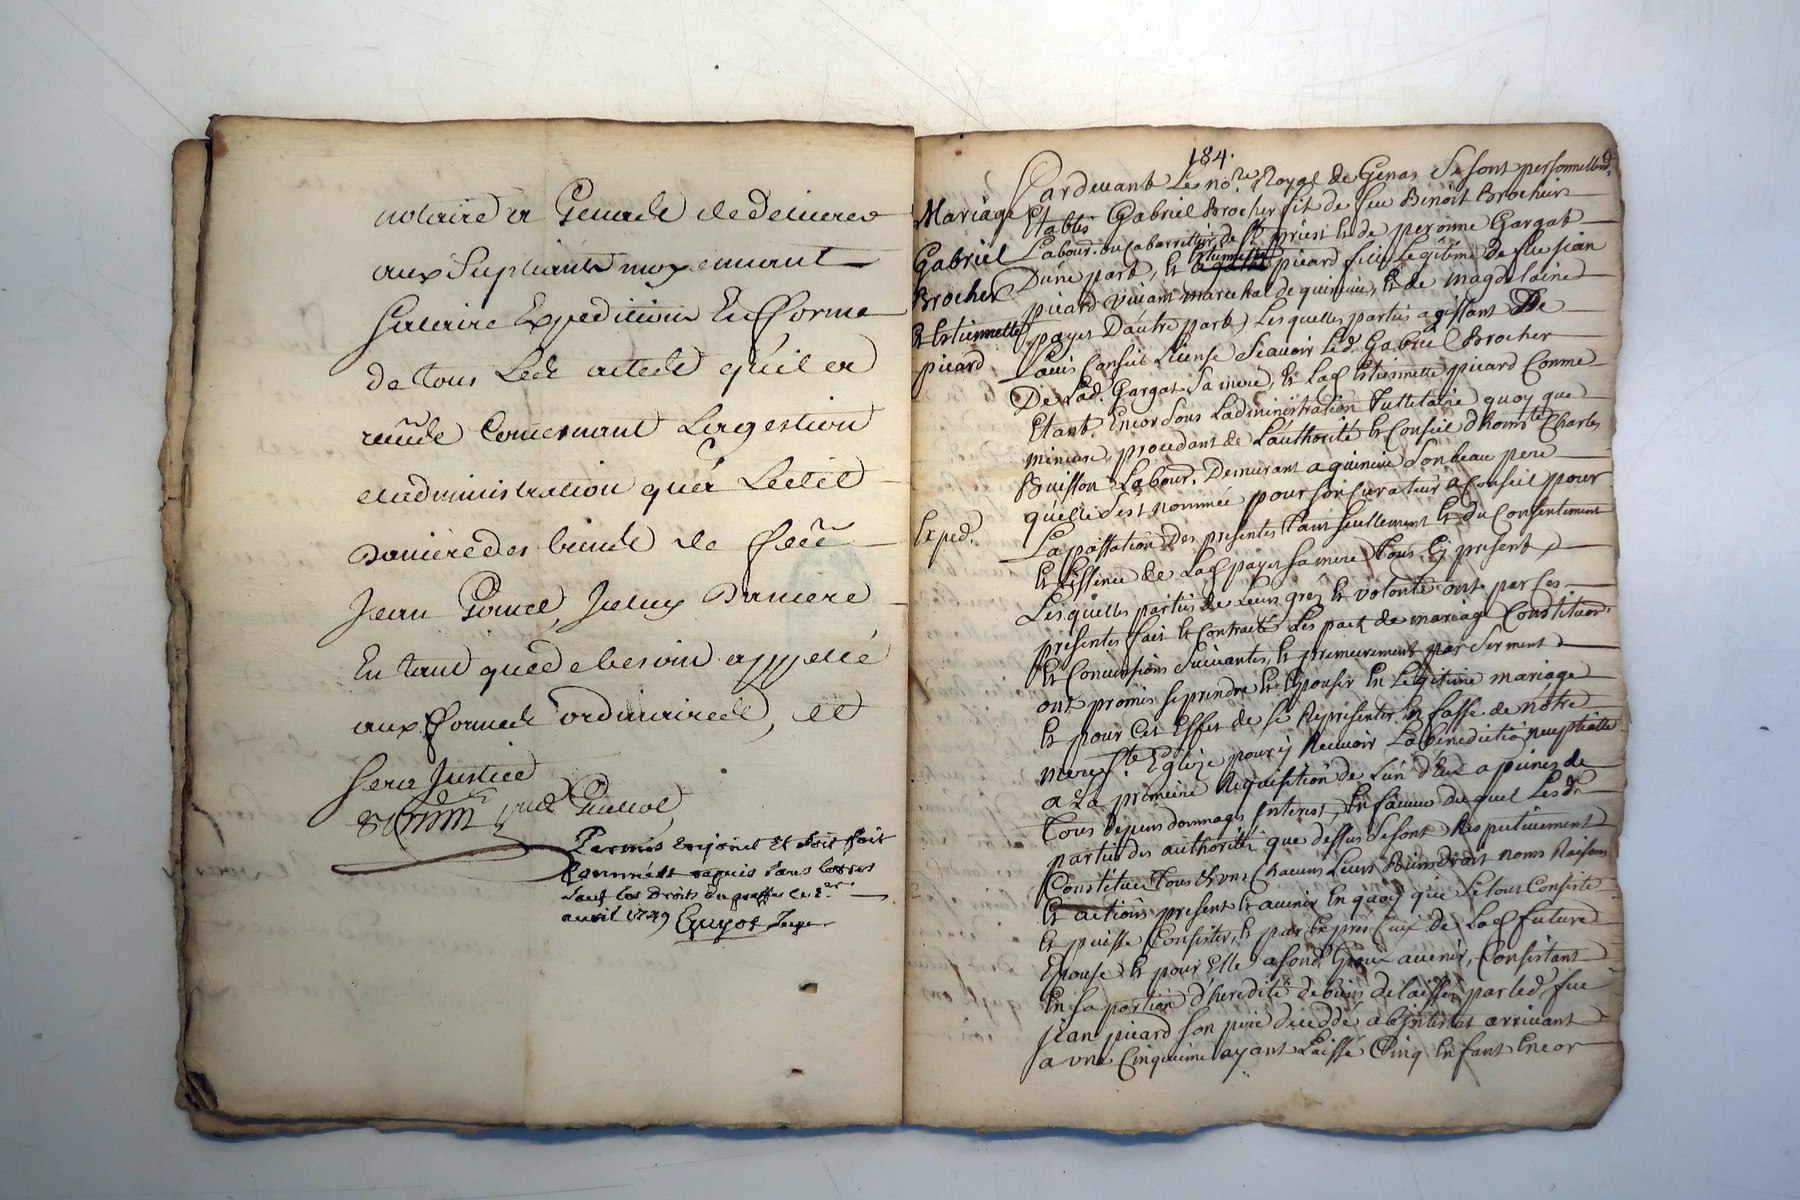 notaire a Genade de delivrer
aux Supliants moyennant
Salaire Expeditions En forme
de tous Les actes qu'il a
concernant La gestion
administration qu'a
Daniere des biens de
Jean Daniere
En tant que de besoin appellé
aux formes ordinaires, et
fera Justice
Permis Enjoint Et soit fait
Sauf les Droits du greffe ce 1er
avril 1749 Guyot Juge
184.
Pardevant Le nore. Royal de Genas Se sont personnellemt.
Etablis Gabriel Brocher fils de feu Benoit Brocher
Labour. ou Cabarretier de St priest Et de peronne Gargat
D'une part, Et Estiennette picard fille Legitime De feu jean
picard vivant marechal de Et de magdelaine
payet D'autre part) Lesquelles parties agissant De
Conseil Sçavoir Led. Gabriel Brocher
De Lad. Gargat Sa mere, Et Lad Estiennette picard Comme
Etant Encor Sous L'administration Tuttelaire quoy que
mineure, procedant de L'authorité Et Conseil d'honnte Charles
Buisson Labour. Demeurant a Son beau pere
qu'elle s'est nommée pour son Curateur a Conseil pour
La passation Des presentes Tant Seullement Et du Consentement
Et de Lad payet Sa mere) Tous Ey present,
Lesquelles parties de Leurs grez Et volonté ont par Ces
presentes fait Et Contracté Les pact de mariage Constitution
Et Conventions Suivantes, Et premierement par Serment
ont promis se prendre Et Epouser En Legitime mariage
Et pour Cet Effet de se Representer En fasse de notre
mere Ste Eglize pour y Recevoir La benediction nuptialle
a La premiere Requisition de L'un d'Eux a peines de
Tous Depens dommages Interest, En faveur duquel Lesd.
parties des authorités que dessus Se sont Respectivement
Constitué Tous Et uns Chacuns Leurs Biens droit noms Raisons
Et actions present Et avenir En quoy que Le tout Consiste
Et puisse Consister, Et par Exprés Ceux de Lad future
Epouse Et pour Elle a sond. Epoux avenir, Consistant
En sa portion d'heredité de biens delaissés par led. feu
jean picard son pere decedé abintestat arrivant
a une Cinquieme ayant Laissé Cinq Enfant Encor
Mariage
Gabriel
Brocher
Et Estiennette
picard
Exped.